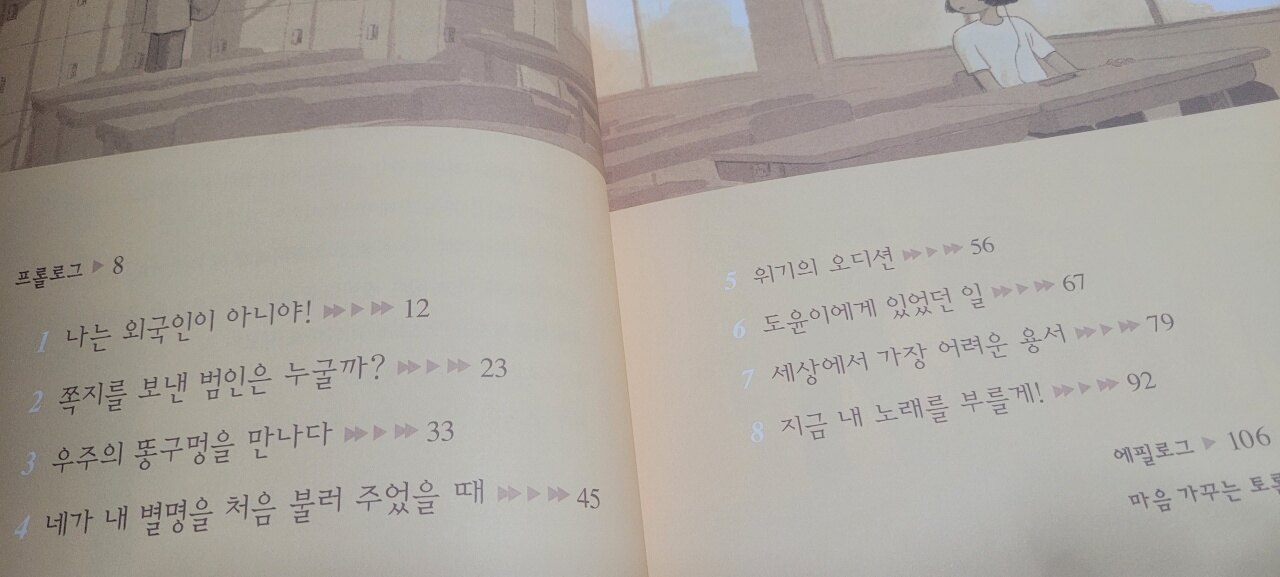 프롤로그 ▶ 8
1 나는 외국인이 아니야! ▶▶ ▶ ▶▶ 12
2 쪽지를 보낸 범인은 누굴까? ▶▶ ▶ ▶▶ 23
3 우주의 똥구멍을 만나다 ▶▶ ▶ ▶▶ 33
4 네가 내 별명을 처음 불러 주었을 때 ▶▶ ▶ ▶▶ 45
5 위기의 오디션 ▶▶ ▶ ▶▶ 56
6 도윤이에게 있었던 일 ▶▶ ▶ ▶▶ 67
7 세상에서 가장 어려운 용서 ▶▶ ▶ ▶▶ 79
8 지금 내 노래를 부를게! ▶▶ ▶ ▶▶ 92
에필로그 ▶ 106
마음 가꾸는